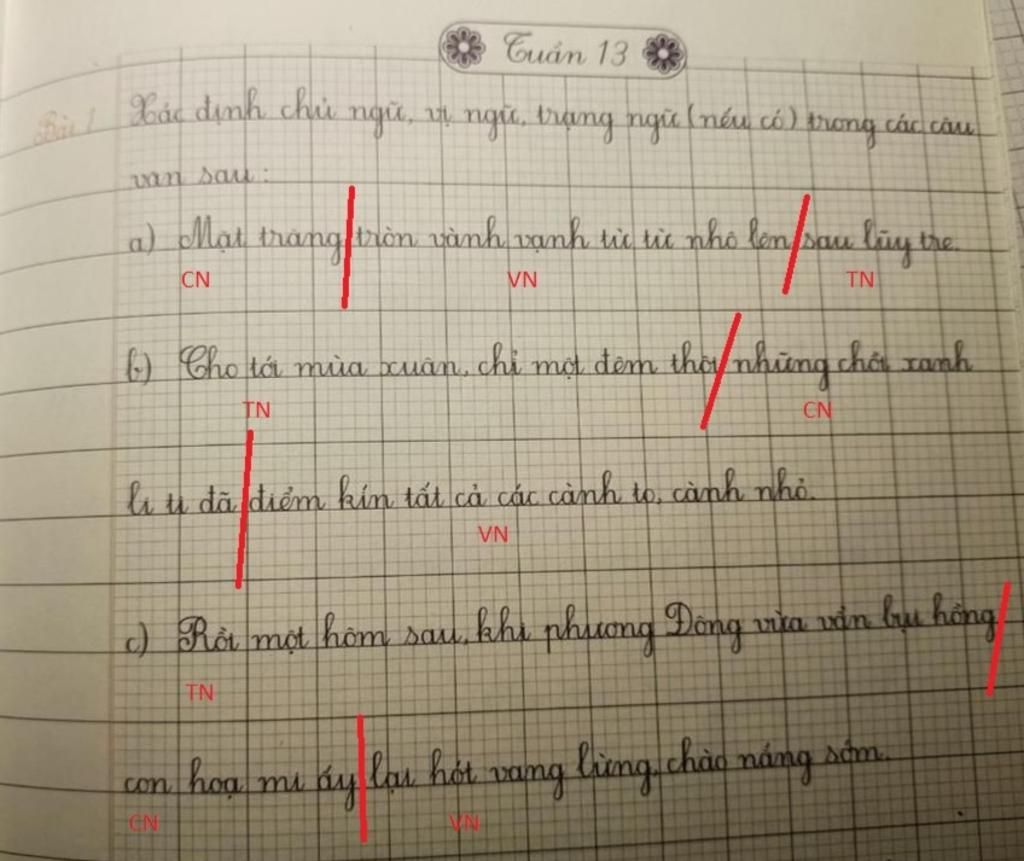 Tuần 13
Bài 1 Xác định chủ ngữ, vị ngữ, trạng ngữ (nếu có) trong các câu
văn sau:
a) Mặt trăng tròn vành vạnh từ từ nhô lên sau lũy tre.
CN VN TN
b) Cho tới mùa xuân, chỉ một đêm thôi những chồi xanh
TN CN
li ti đã điểm kín tất cả các cành to, cành nhỏ.
VN
c) Rồi một hôm sau, khi phương Đông vừa vẩn bụi hồng
TN
con hoạ mi ấy lại hót vang lừng, chào nắng sớm.
CN VN